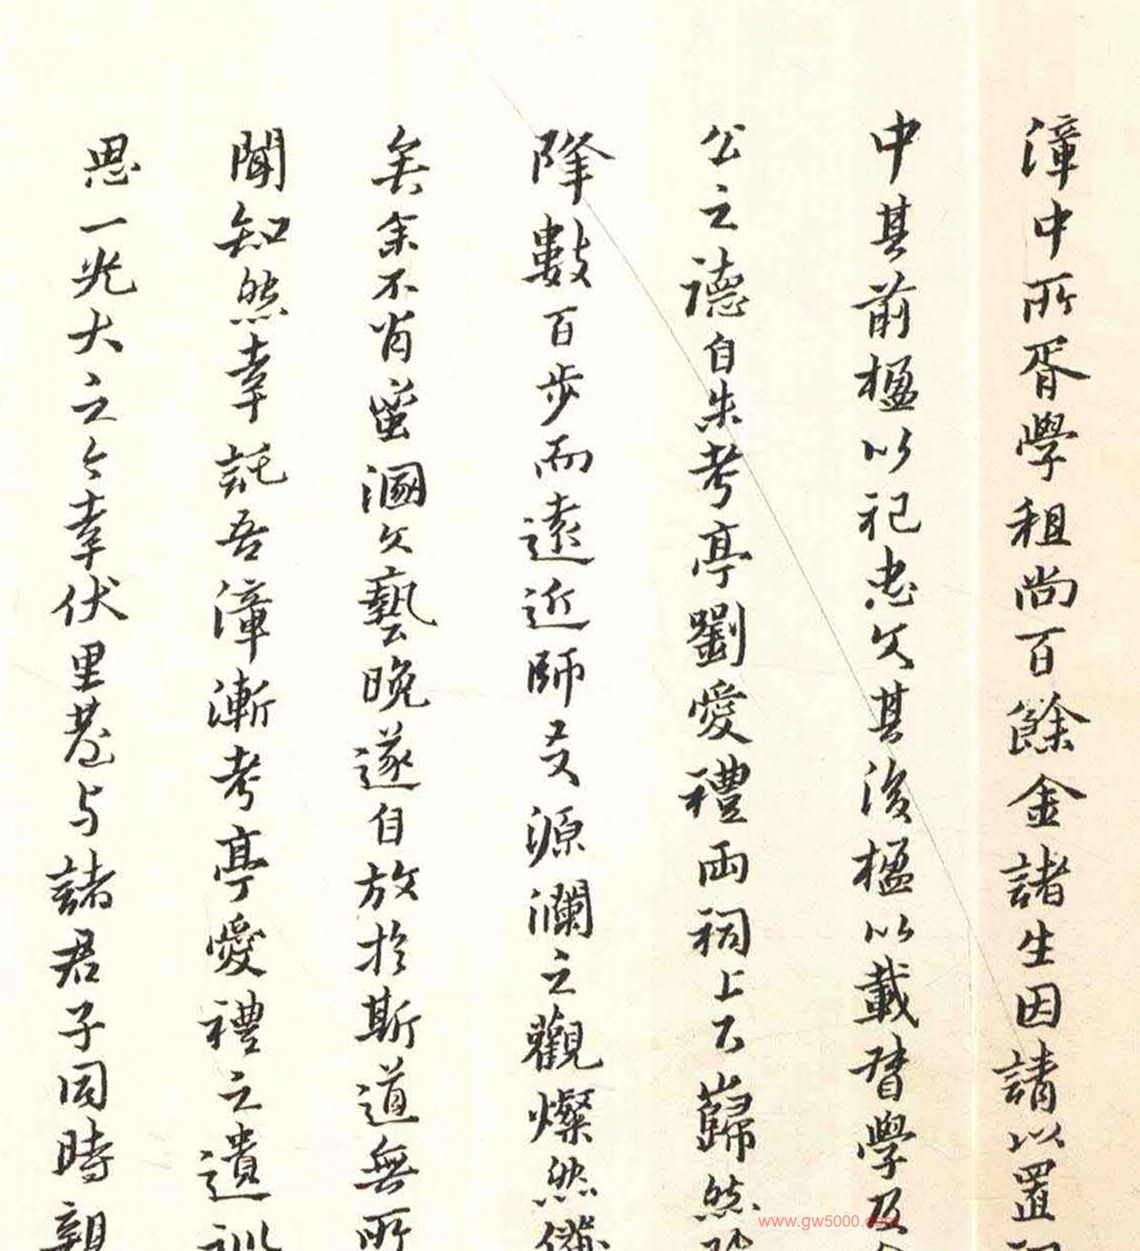 漳中所胥學租尚百餘金諸生因請以置祠
中其前楹以祀忠文其後楹以載督學及
公之德自朱考亭劉愛禮兩祠上下巋然
降數百步而遠近師友源瀾之觀燦然備
矣余不肖蚤溷文藝晚遂自放於斯道無所
聞知然幸託吾漳漸考亭愛禮之遺訓
思一光大之今幸伏里塾与諸君子同時親
www.gw5000.com